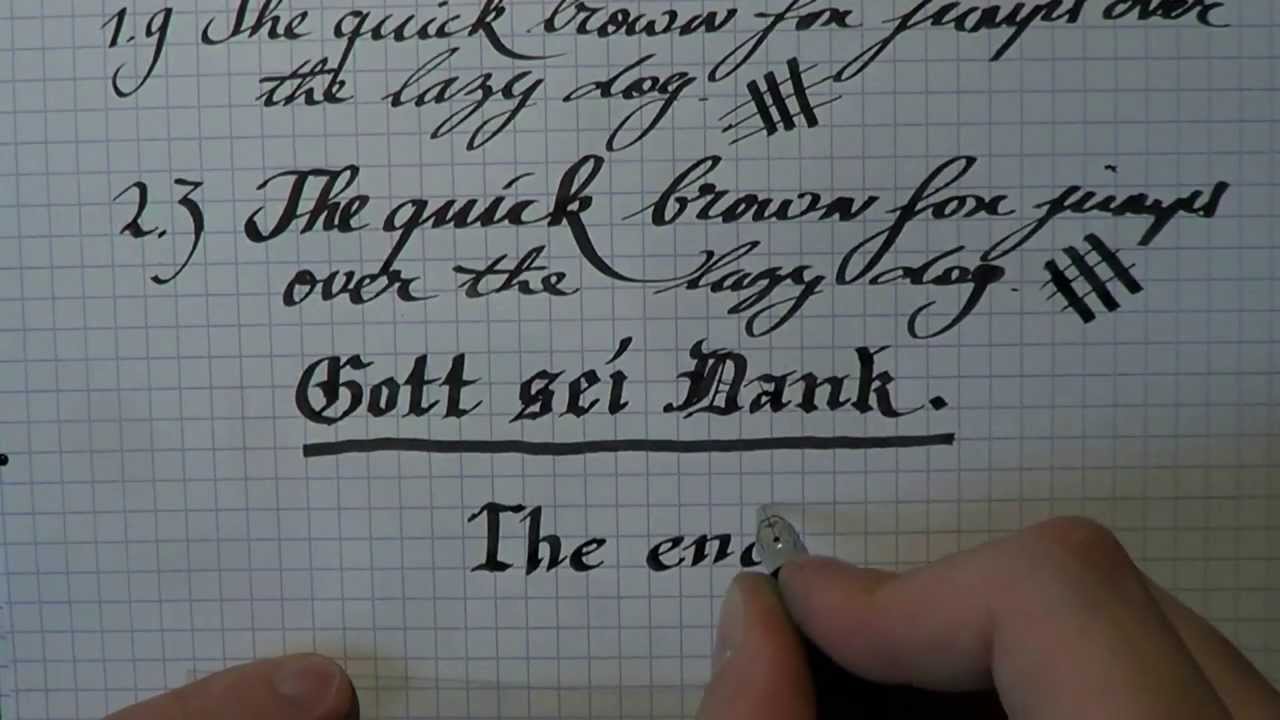 1.9 The quick brown fox jumps over
the lazy dog.
2.3 The quick brown fox jumps
over the lazy dog.
Gott sei Dank.
The end